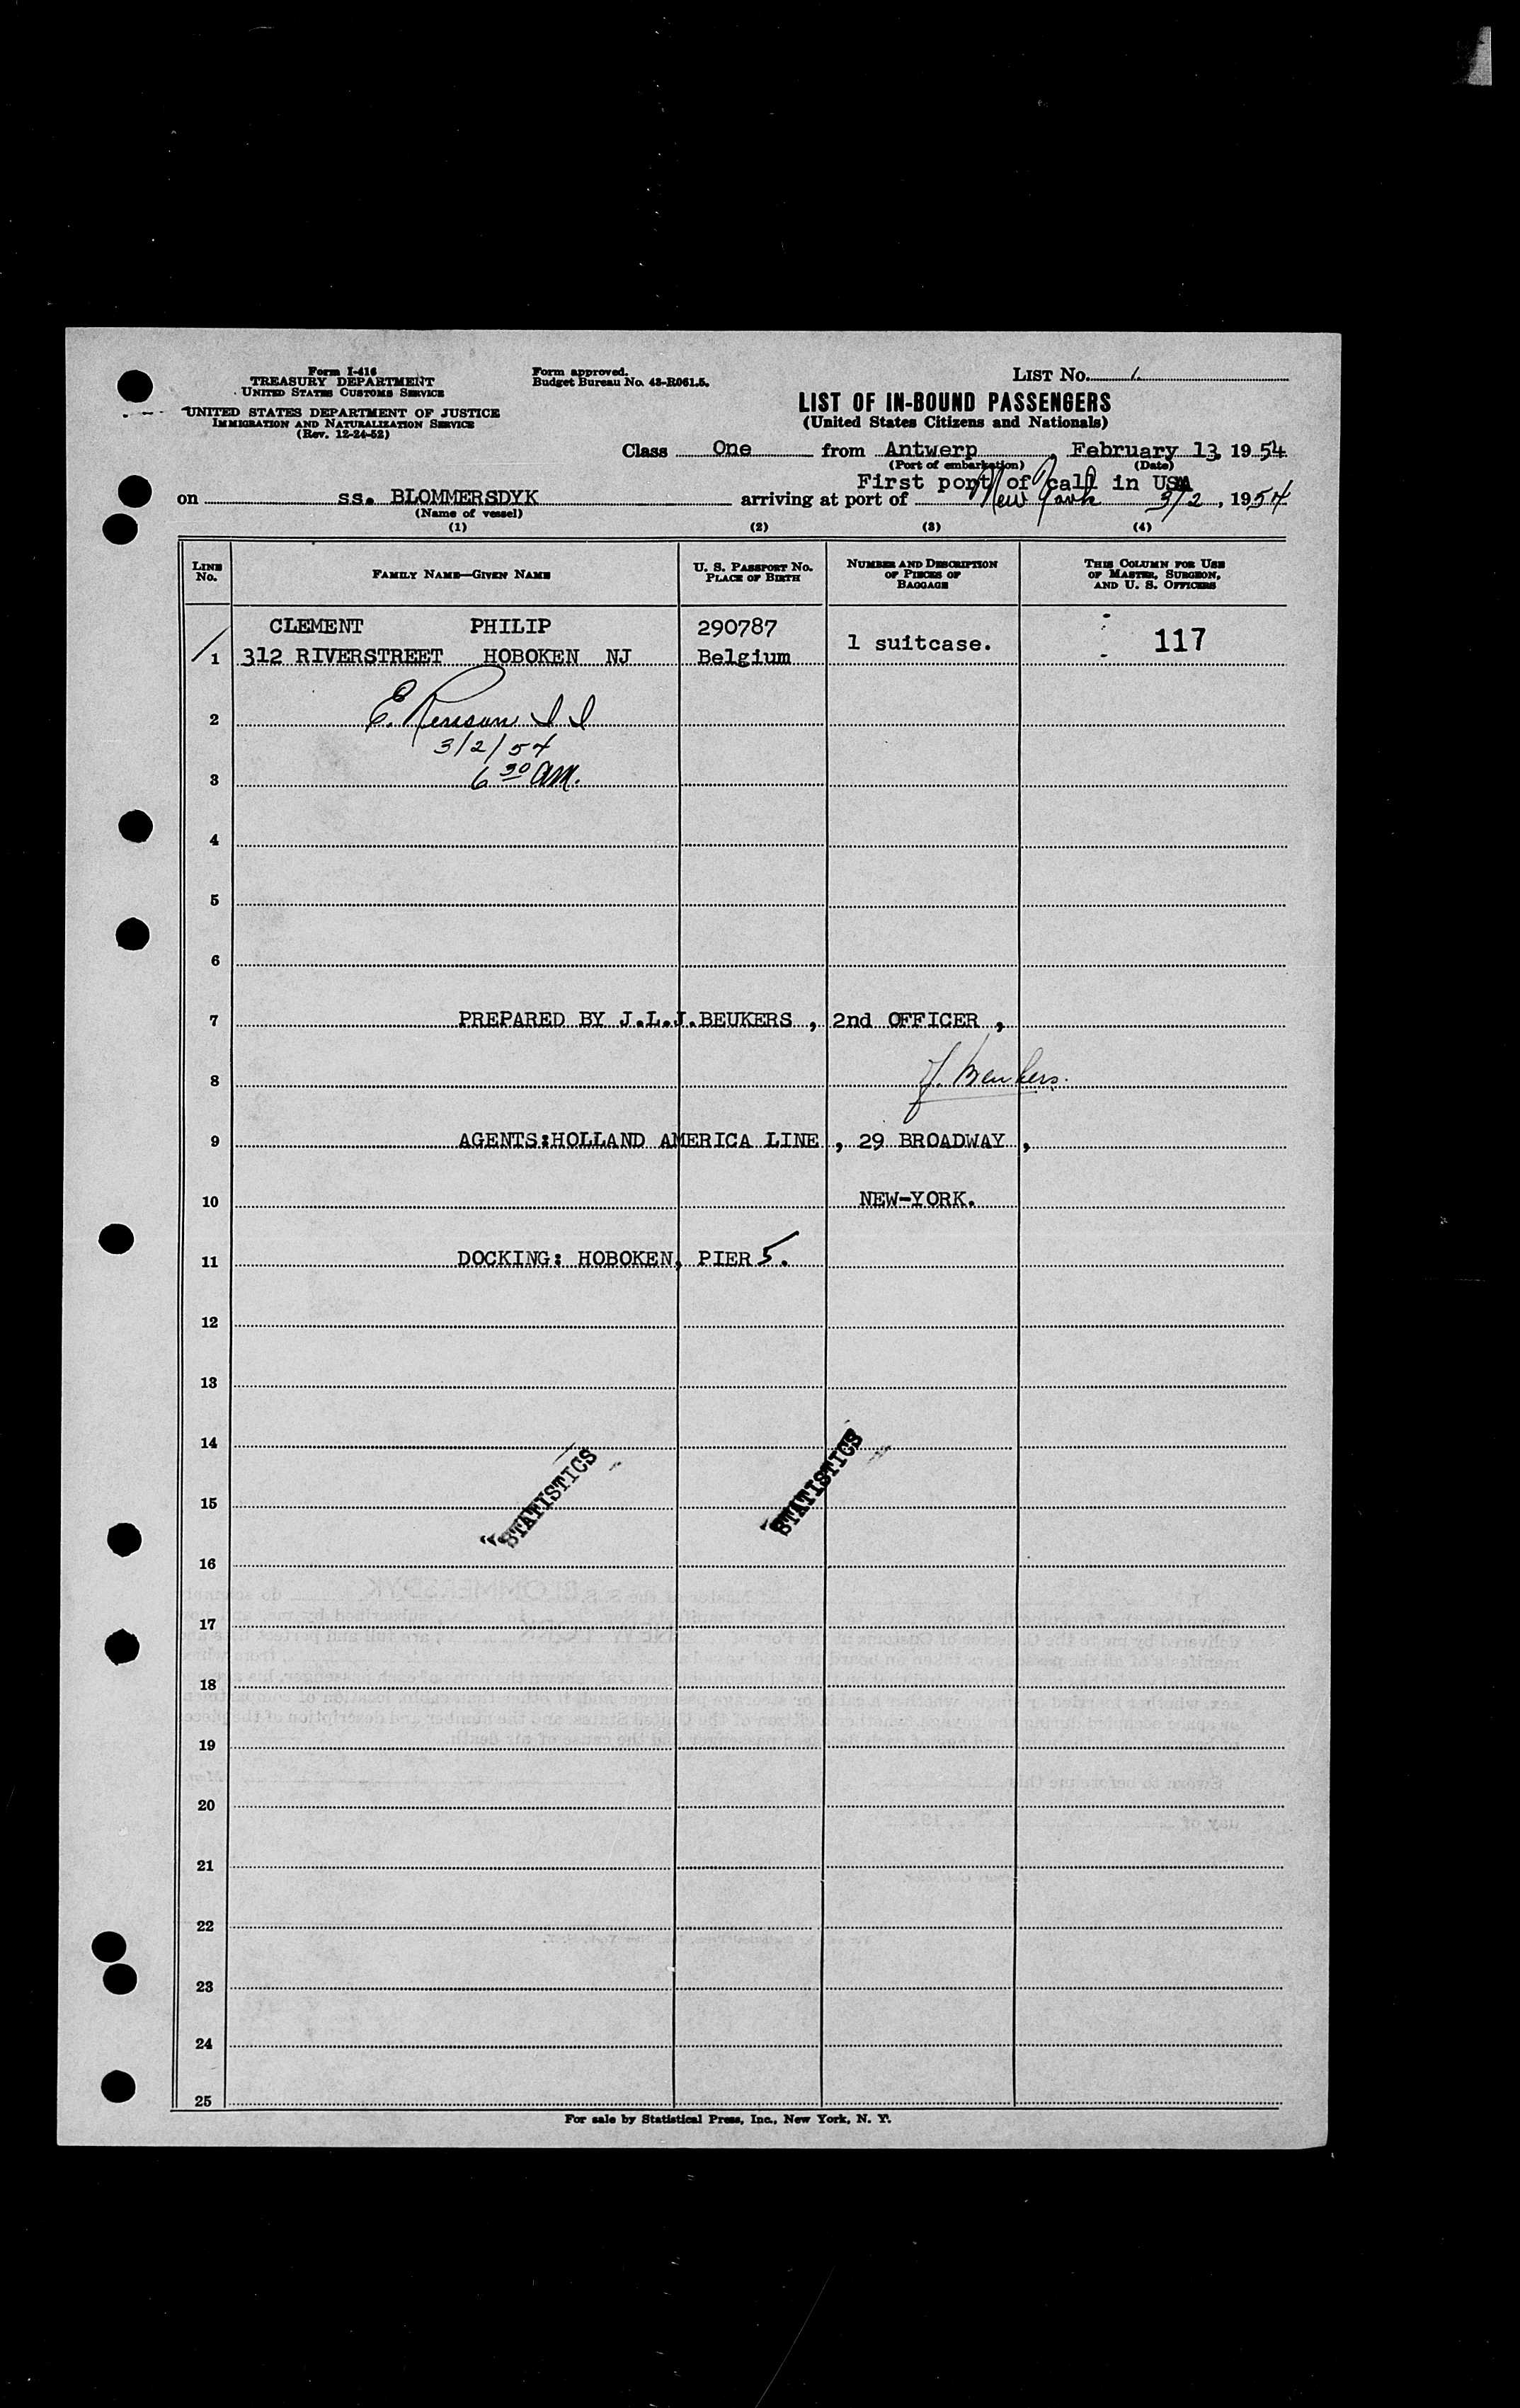 Form I-416
TREASURY DEPARTMENT
UNITED STATES CUSTOMS SERVICE
UNITED STATES DEPARTMENT OF JUSTICE
IMMIGRATION AND NATURALIZATION SERVICE
(Rev. 12-24-52)
Form approved.
Budget Bureau No. 43-R061.5.
LIST NO. 1.
LIST OF IN-BOUND PASSENGERS
(United States Citizens and Nationals)
Class One from Antwerp, February 13, 1954
(Port of embarkation) (Date)
First port of call in USA
on ss. BLOMMERSDYK arriving at port of New York 3/2, 1954
(Name of vessel)
(1) (2) (3) (4)
LINE NO. FAMILY NAME—GIVEN NAME U. S. PASSPORT NO. PLACE OF BIRTH NUMBER AND DESCRIPTION OF PIECES OF BAGGAGE THIS COLUMN FOR USE OF MASTER, SURGEON, AND U. S. OFFICERS
CLEMENT PHILIP 290787
1 312 RIVERSTREET HOBOKEN NJ Belgium 1 suitcase. 117
2 E.
3/2/54
3 6 30 AM.
4
5
6
7 PREPARED BY J.L.J.BEUKERS , 2nd OFFICER ,
8 J. Beukers.
9 AGENTS:HOLLAND AMERICA LINE , 29 BROADWAY ,
10 NEW-YORK.
11 DOCKING: HOBOKEN, PIER 5.
12
13
14
STATISTICS STATISTICS
15
16
17
18
19
20
21
22
23
24
25
For sale by Statistical Press, Inc., New York, N. Y.